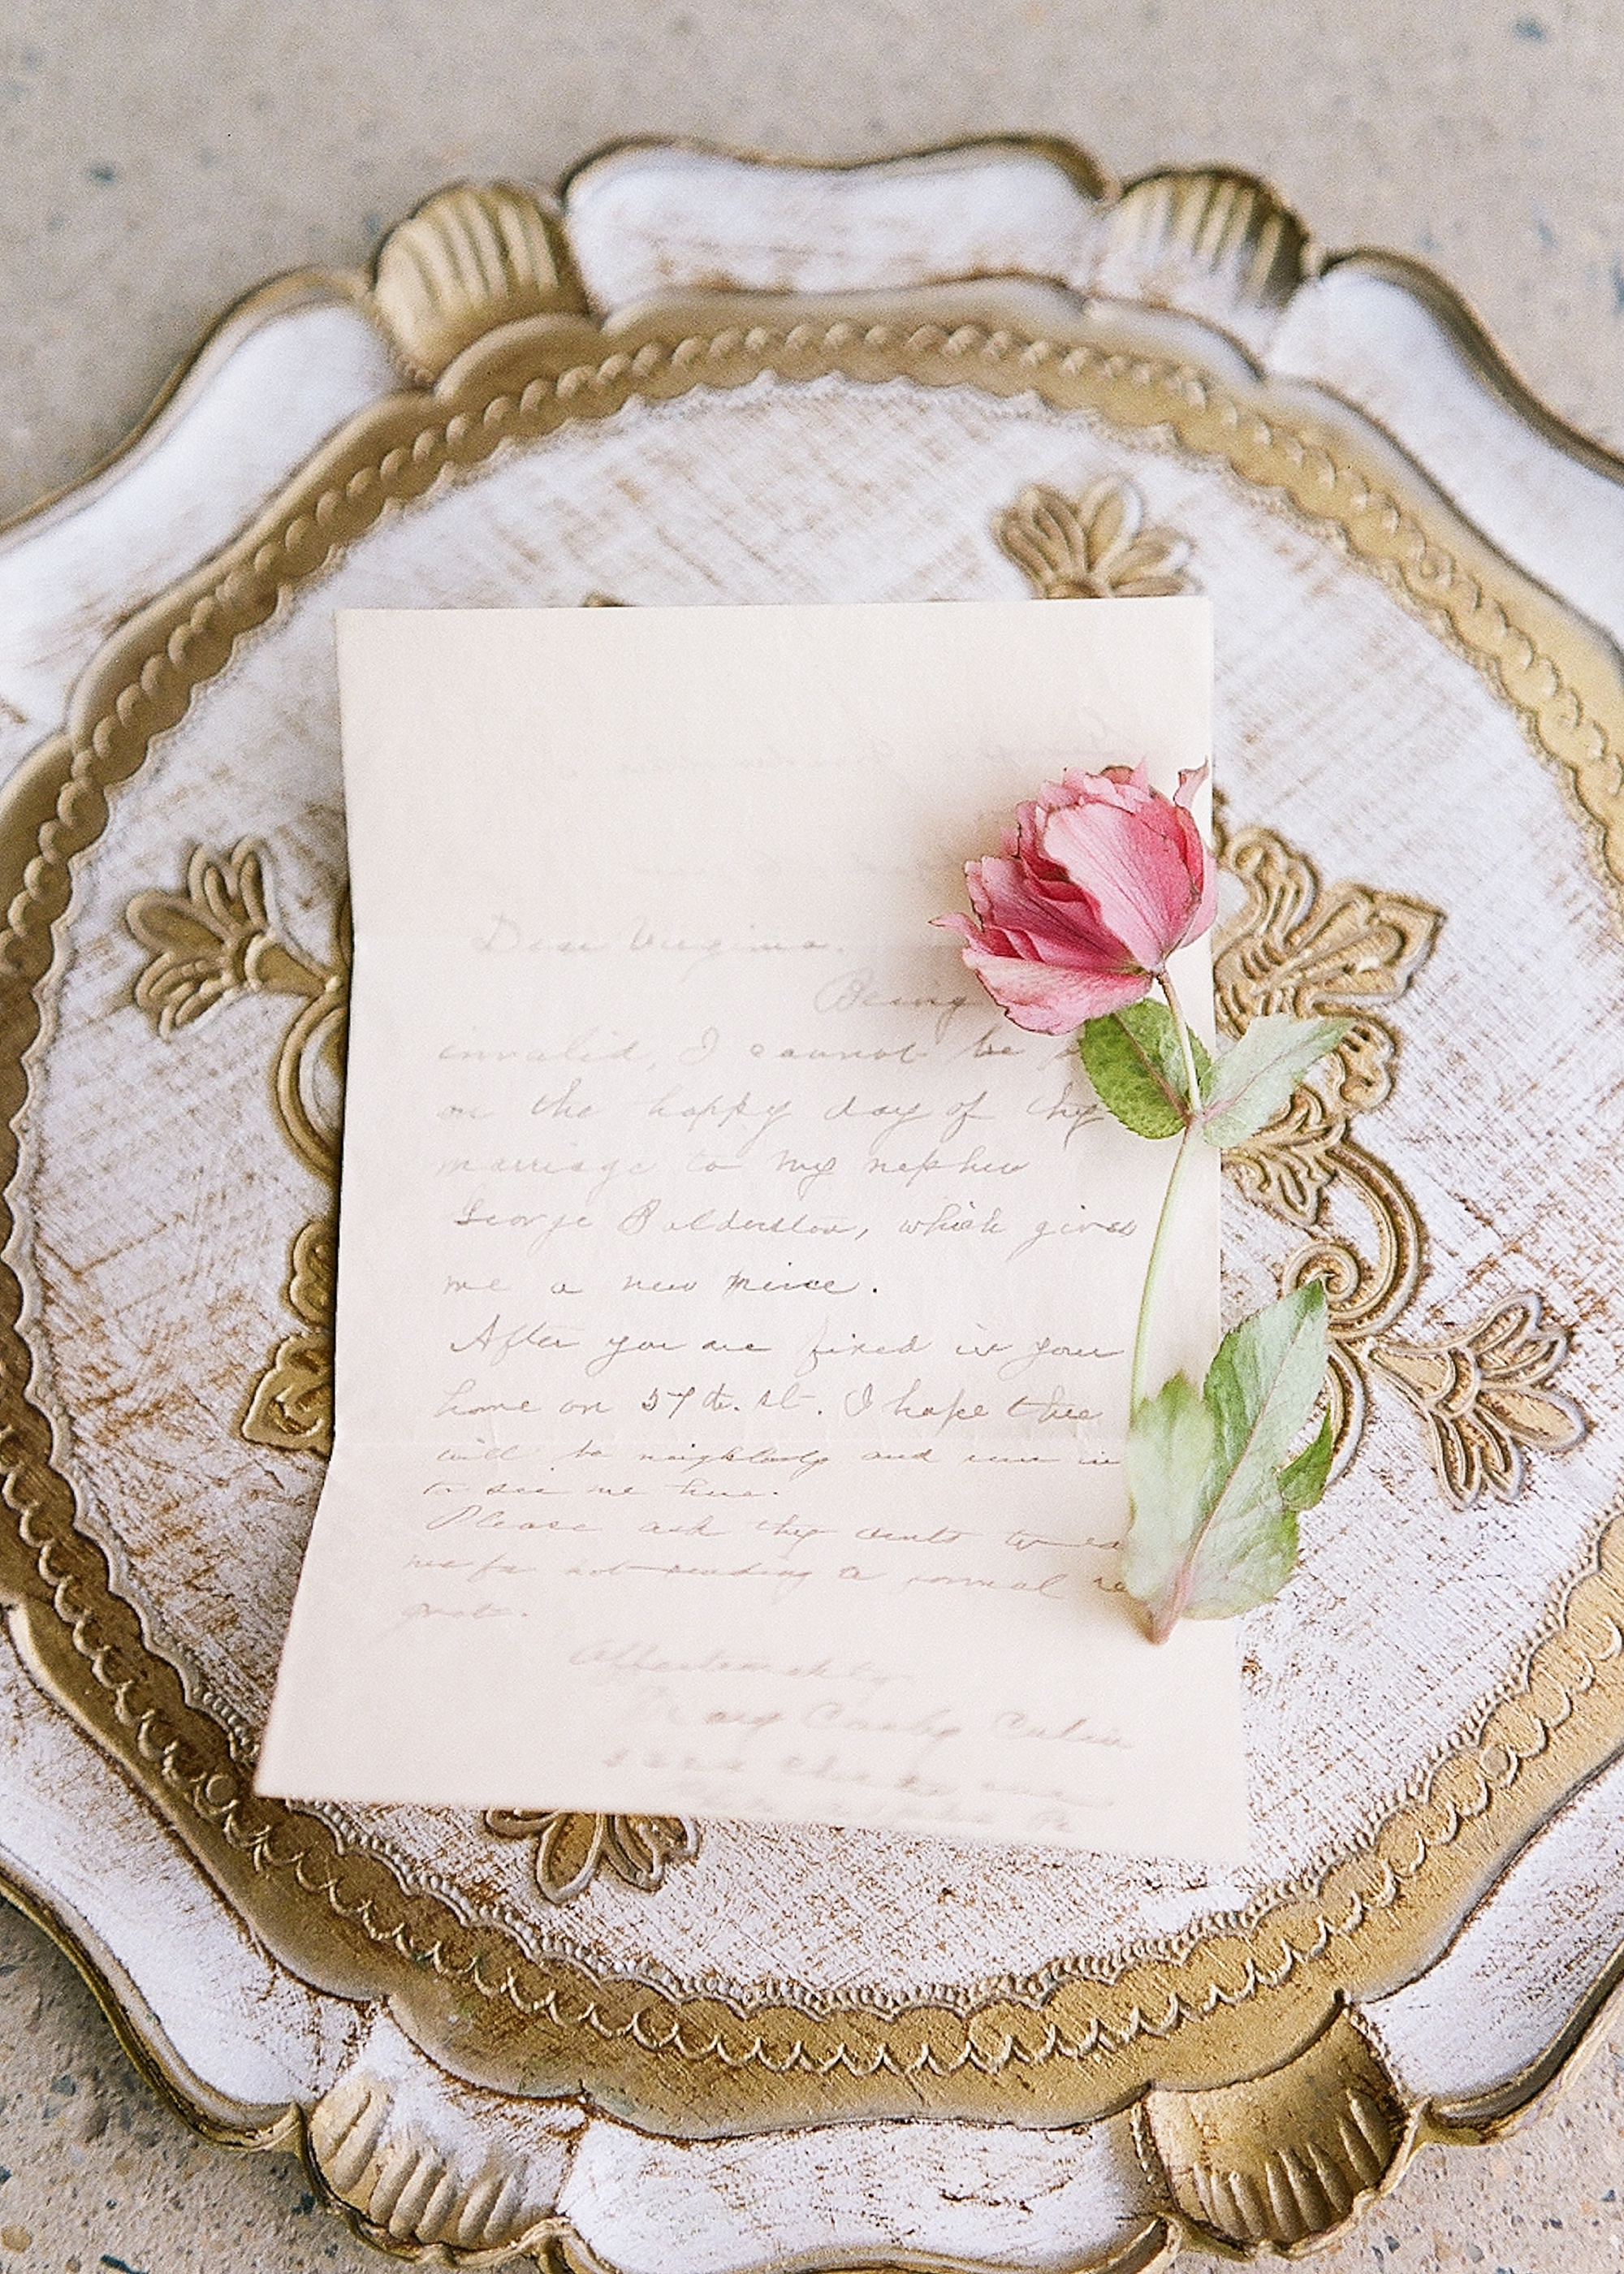 Dear Virginia.
Being
invalid, I cannot be
on the happy day of thy
marriage to my nephew
George Balderston, which gives
me a new niece.
After you are fixed in your
home on 57th. St. I hope thee
will be neighborly and run in
to see me here.
Please ask thy aunts to
me for not sending a formal re
gret.
Affectionately
Mary Cooly